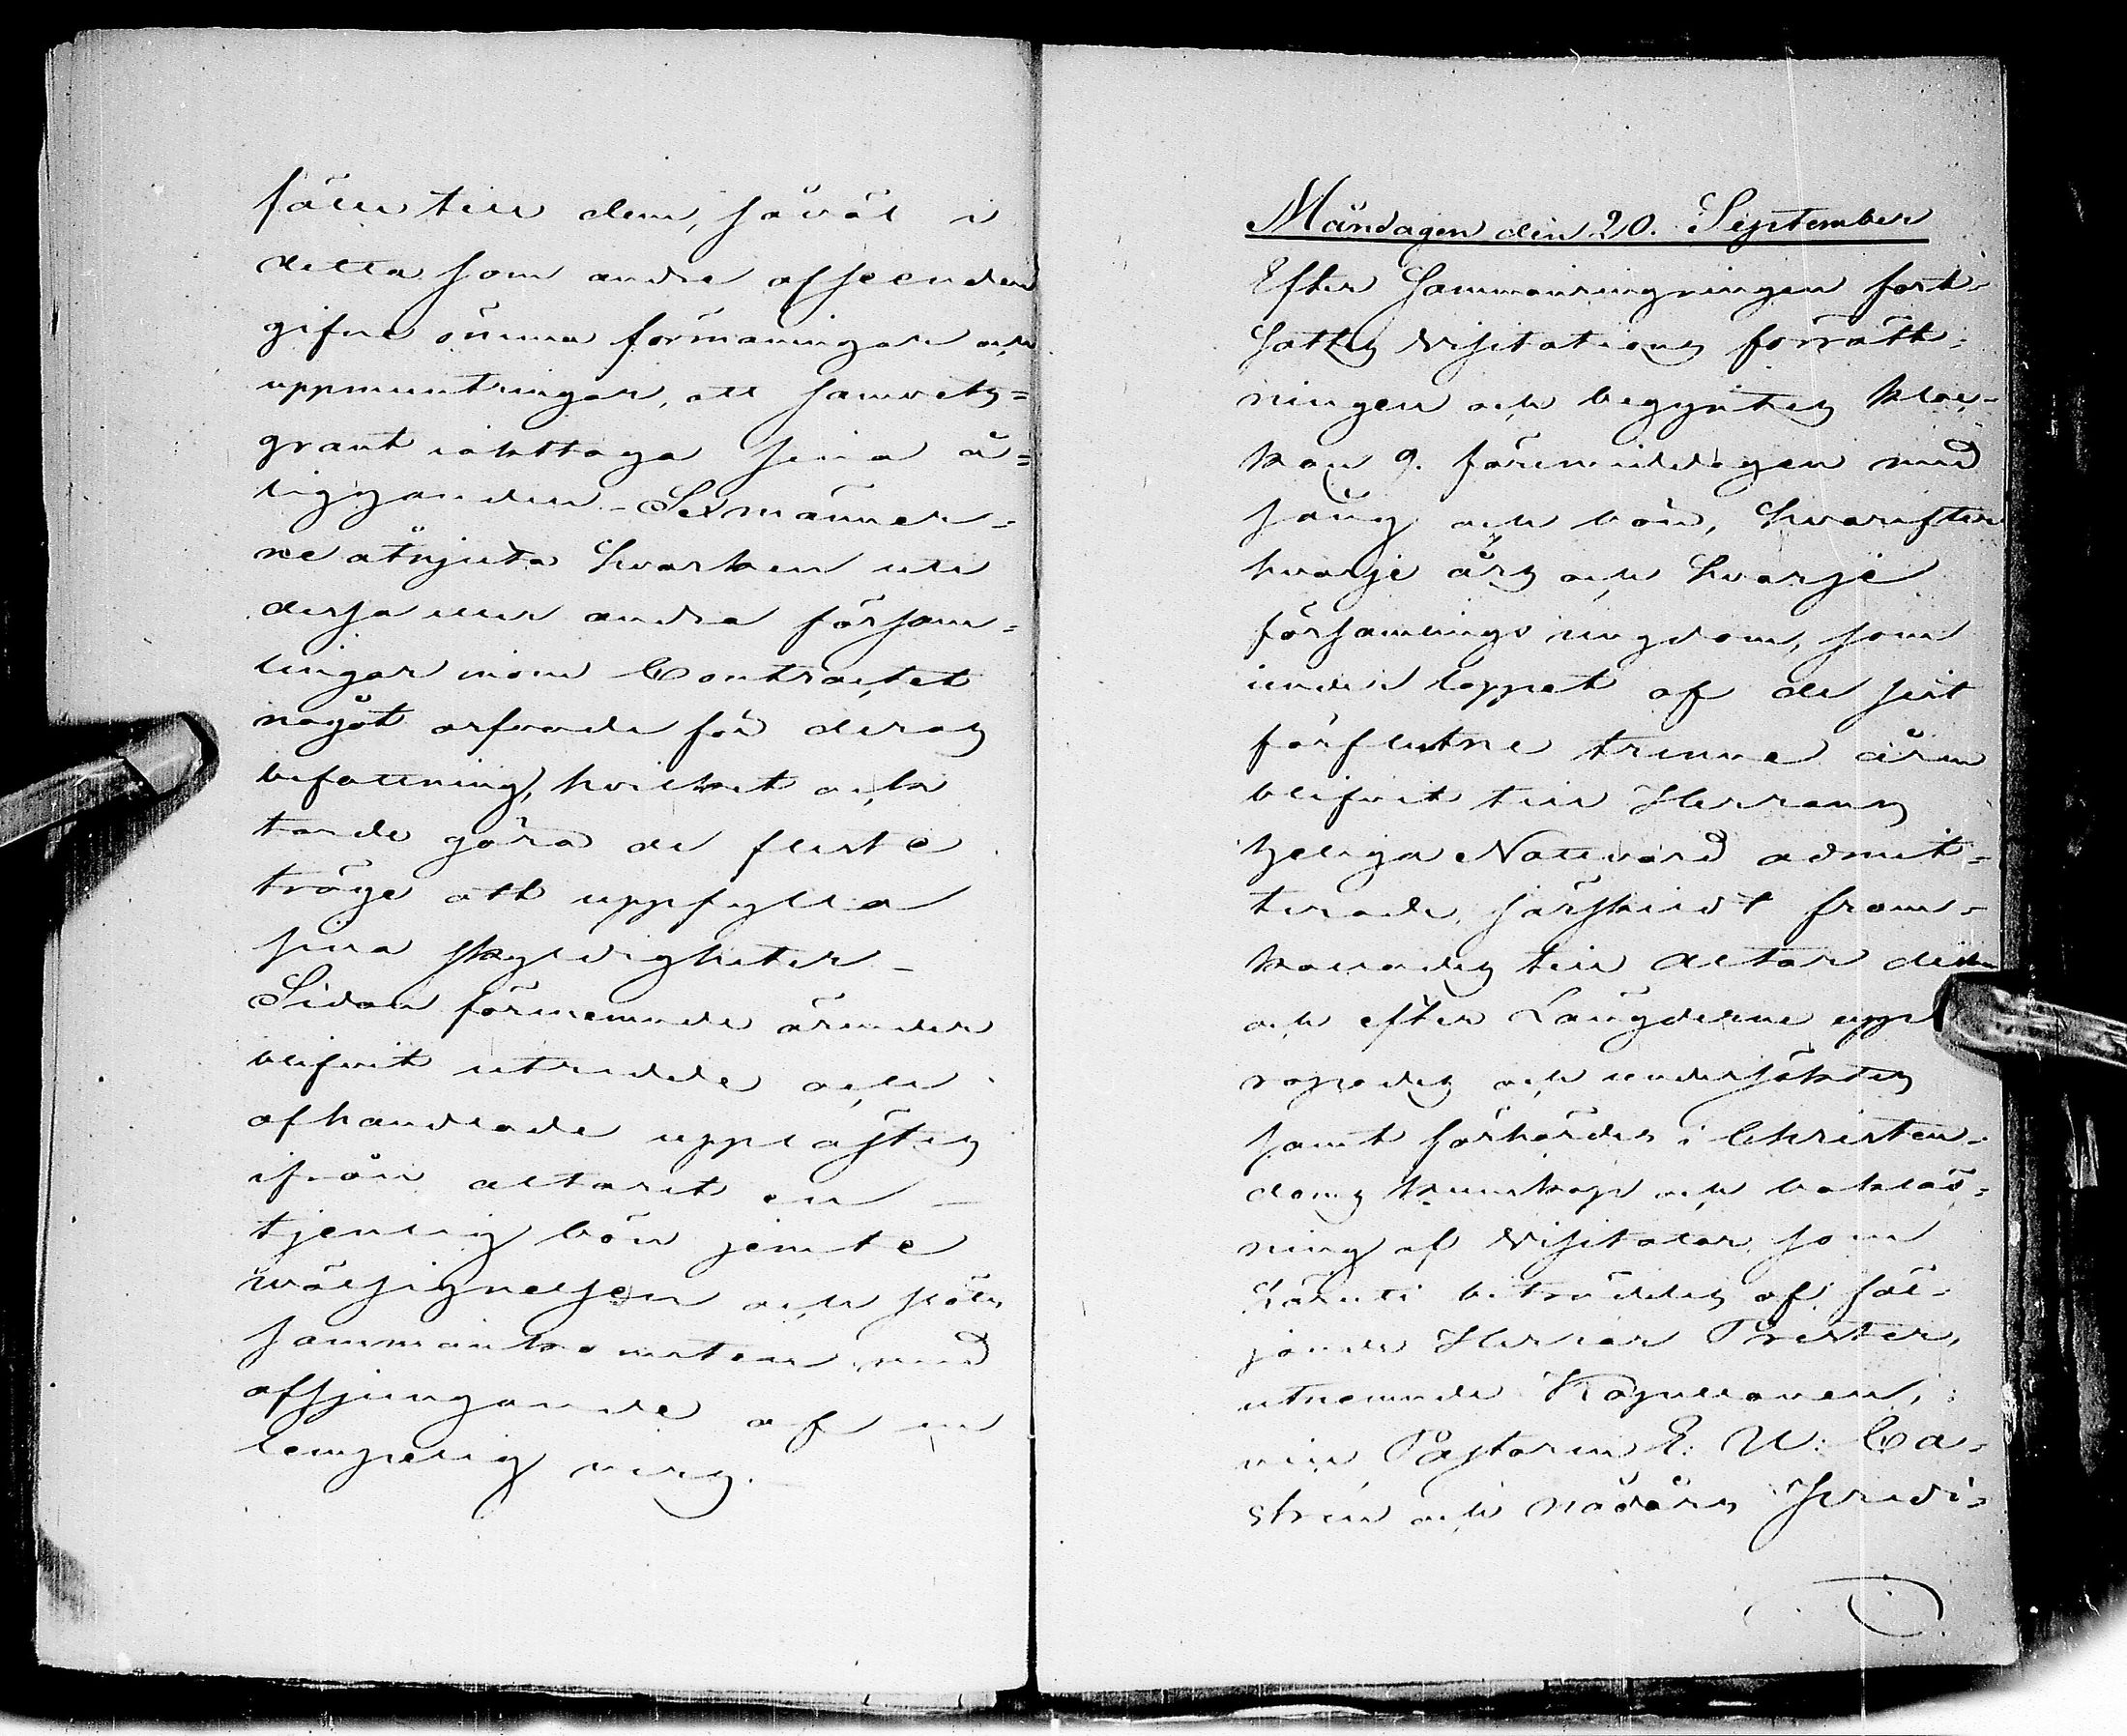 fälle till dem, såväl i
detta som andra afseenden
gifne ömma förmaningar och
uppmuntringar, att samvets=
grant iakttaga sina å=
ligganden – Sexmänner=
ne åtnjuta hvarken uti
dessa eller andra försam=
lingar inom Contractet
något arfvode för deras
befattning, hvilket och
torde göra de fleste
tröge att uppfylla
sina skyldigheter –
Sidan förnemnde ärender
blifvit utredde och
afhandlade upplästes
ifrån altaret en
tjenlig bön jemte
wälsignelsen och slöts
sammankomsten med
afsjungande af en
lempelig vers.
Måndagen den 20. September
Efter Sammanringningen fort=
sattes Visitations förrätt=
ningen och begyntes kloc=
kan 9. föremiddagen med
sång och bön, hvarefter
hvarje års och hvarje
församlings ungdom, som
under loppet af de sist
förflutne trenne åren
blifvit till Herrans
heliga Nattvard admit=
terade, särskildt fram=
kallades till altar disken
och efter Längderne upp
ropades och undersöktes
samt förhördes i Christen=
doms kunskap och bokläs=
ning af Visitator, som
häruti biträddes af föl=
jande Herrar Prester,
utnemnde Kapellanen,
vice Pastorn E: W: Ca=
strén och nådårs Predi=